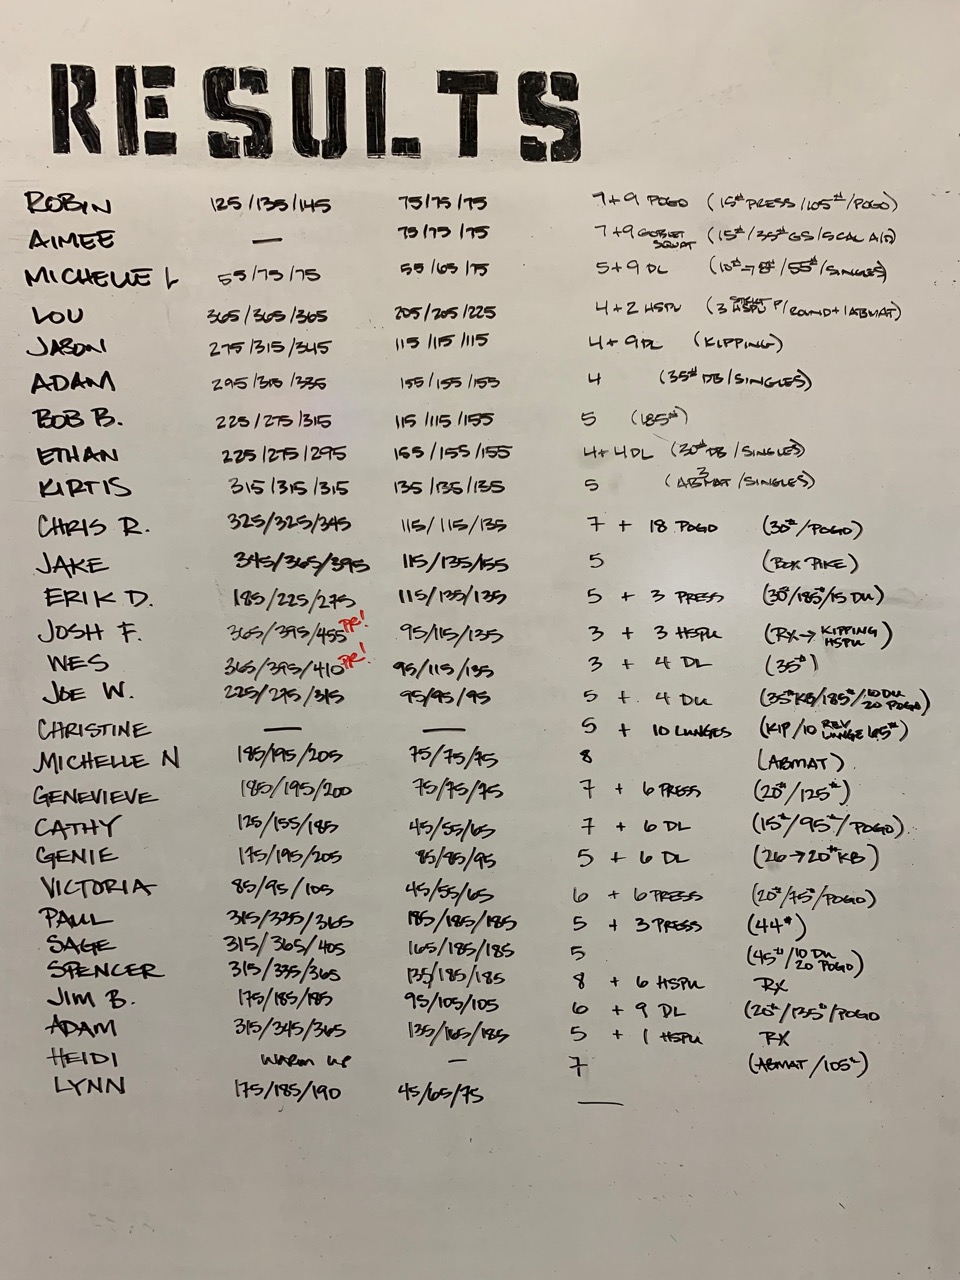 RESULTS
ROBIN 125/135/145 75/75/75 7+9 POGO (15# PRESS/105#/POGO)
AIMEE — 75/75/75 7+9 GOBLET SQUAT (15#/35# GS/SCAL A/D)
MICHELLE L 55/75/75 55/65/75 5+9 DL (10#→8#/55#/SINGLES)
LOU 365/365/365 205/205/225 4+2 HSPU (3 STRICT HSPU P/ROUND+1 ABMAT)
JASON 275/315/345 115/115/115 4+9 DL (KIPPING)
ADAM 295/315/335 155/155/155 4 (35# DB/SINGLES)
BOB B. 225/275/315 115/115/155 5 (185#)
ETHAN 225/275/295 155/155/155 4+4 DL (30# DB/SINGLES)
KIRTIS 315/315/315 135/135/135 5 (3 ABMAT/SINGLES)
CHRIS R. 325/325/345 115/115/135 7 + 18 POGO (30#/POGO)
JAKE 345/365/395 115/135/155 5 (BOX PIKE)
ERIK D. 185/225/275 115/135/135 5 + 3 PRESS (30#/185#/15 DU)
JOSH F. 365/395/455 PR! 95/115/135 3 + 3 HSPU (RX→KIPPING HSPU)
WES 365/395/410 PR! 95/115/135 3 + 4 DL (35#)
JOE W. 225/275/315 95/95/95 5 + 4 DU (35# KB/185#/10 DU 20 POGO)
CHRISTINE — — 5 + 10 LUNGES (KIP/10 REV LUNGE 65#)
MICHELLE N 185/195/205 75/75/75 8 (ABMAT)
GENEVIEVE 185/195/200 75/75/75 7 + 6 PRESS (20#/125#)
CATHY 125/155/185 45/55/65 7 + 6 DL (15#/95#/POGO)
GENIE 175/195/205 85/85/95 5 + 6 DL (26→20# KB)
VICTORIA 85/95/105 45/55/65 6 + 6 PRESS (20#/75#/POGO)
PAUL 315/335/365 185/185/185 5 + 3 PRESS (44#)
SAGE 315/365/405 165/185/185 5 (45#/10 DU 20 POGO)
SPENCER 315/335/365 135/185/185 8 + 6 HSPU RX
JIM B. 175/185/185 95/105/105 6 + 9 DL (20#/135#/POGO
ADAM 315/345/365 135/165/185 5 + 1 HSPU RX
HEIDI WARM UP — 7 (ABMAT/105#)
LYNN 175/185/190 45/65/75 —